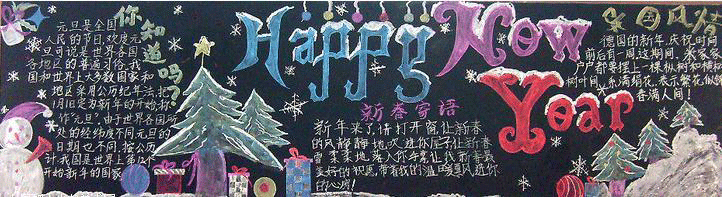 你知道吗?
元旦是全国
人民的节日,欢度元
旦可说是世界各国
各地区的普遍习俗,我
国和世界上大多数国家和
地区采用公历纪年法,把
1月1日定为新的开始,称
作“元旦”.由于世界各国所
处的经纬度不同,元旦的
日期也不同,按公历
计我国是世界上第12个
开始新年的国家
Happy New
Year
新春寄语
新年来了,请打开窗,让新春
的风静静地吹进你屋子,让新春
雪柔柔地落入你手套,让我新春最
美好的祝愿,带着我的温 风进你
的心
异国风情
德国的新年,庆祝时间
前后有一周,这期间,家家
户户都要摆上一棵枞树和横树
树叶间系满绢花,表示繁花似锦
春满人间!